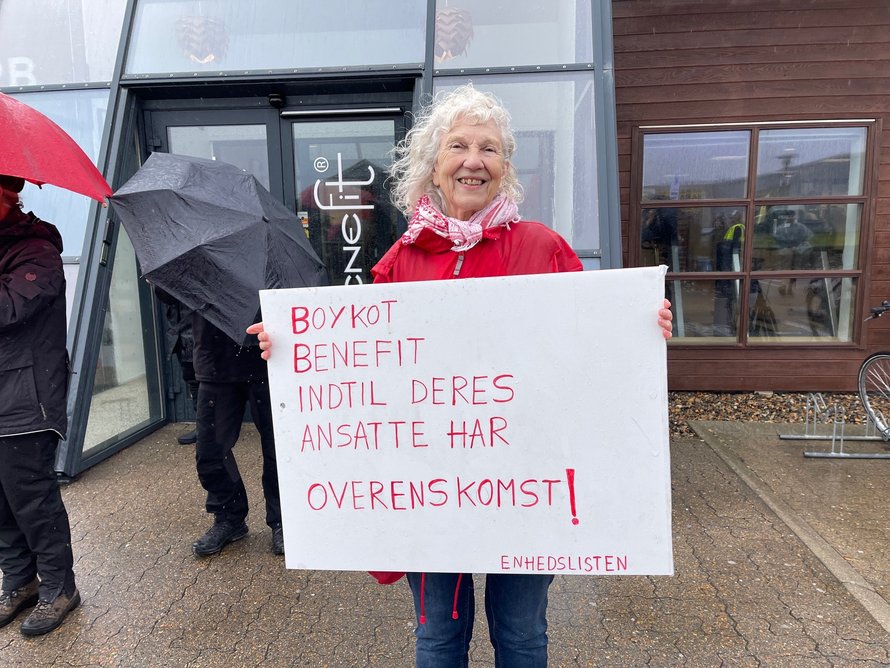 RB
enefit®
BOYKOT
BENEFIT
INDTIL DERES
ANSATTE HAR
OVERENSKOMST!
ENHEDSLISTEN